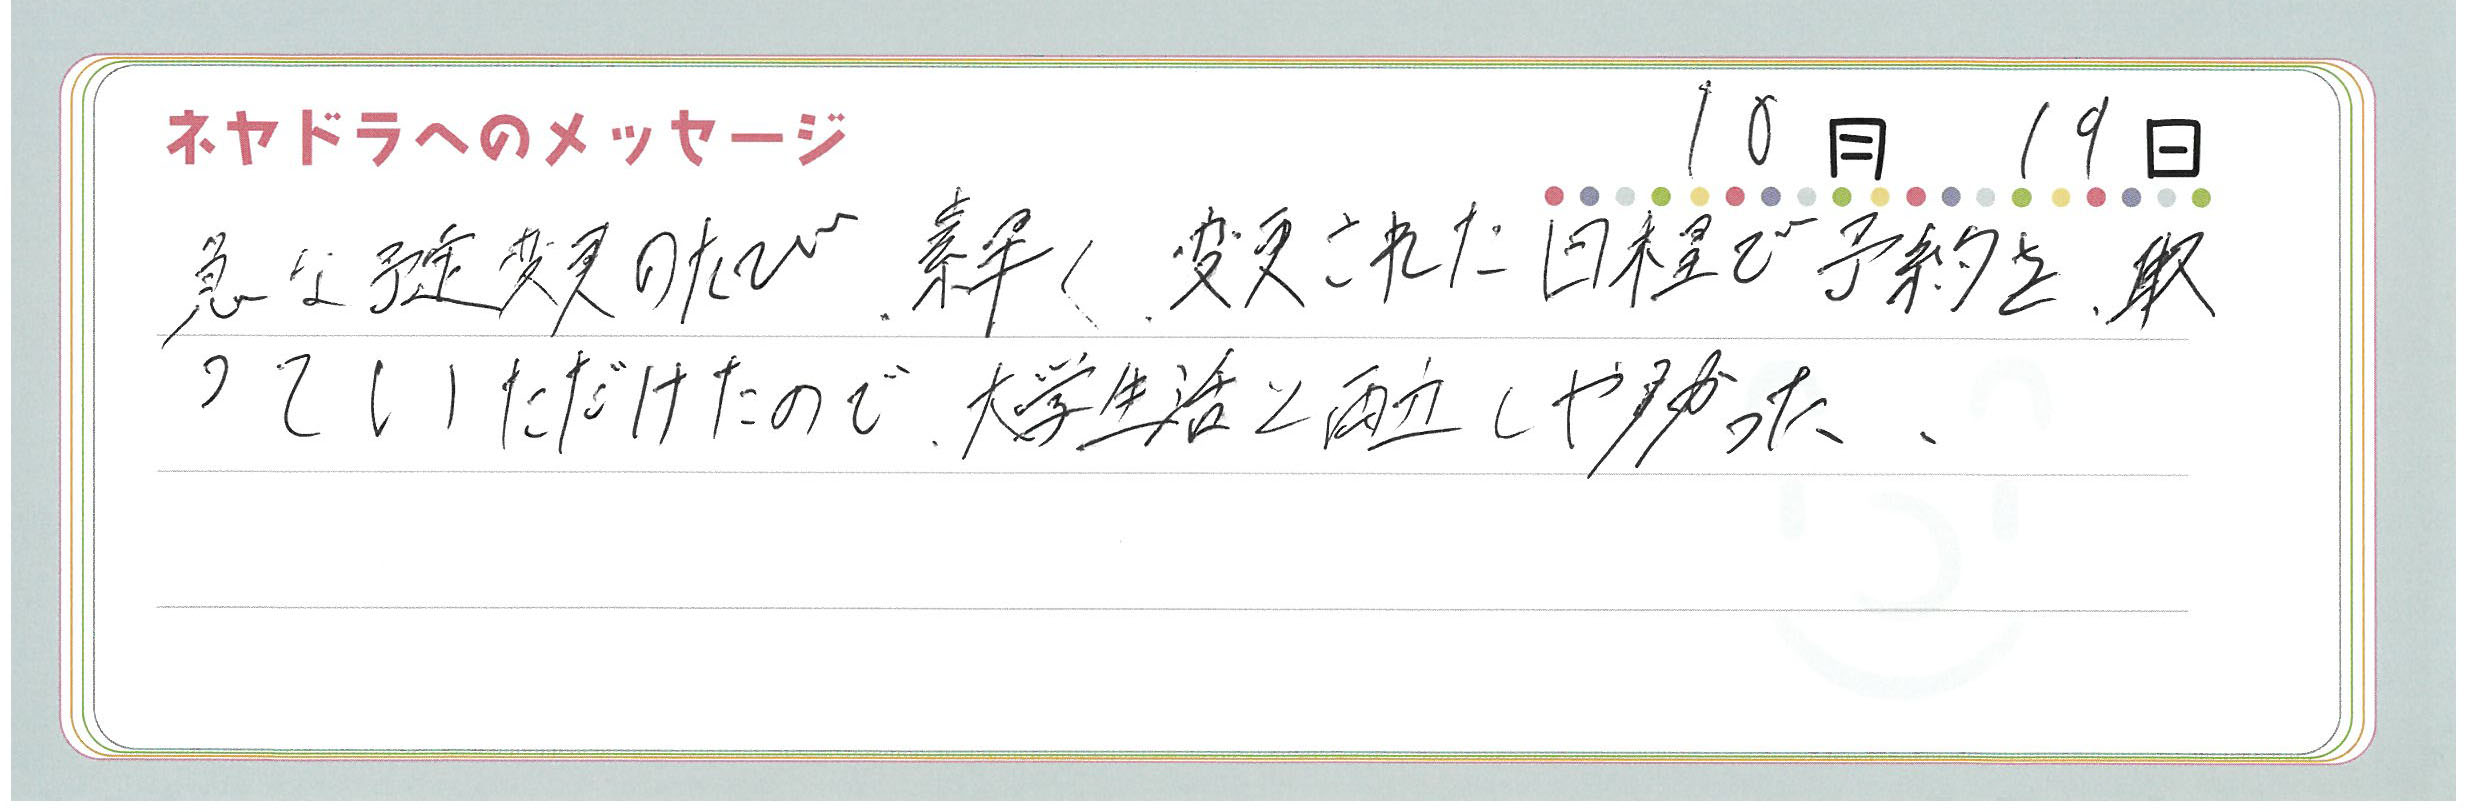 ネヤドラへのメッセージ
10月 19日
急な予定変更のたび、素早く、変更された日程で予約を、取
っていただけたので、大学生活と両立しやすかった、